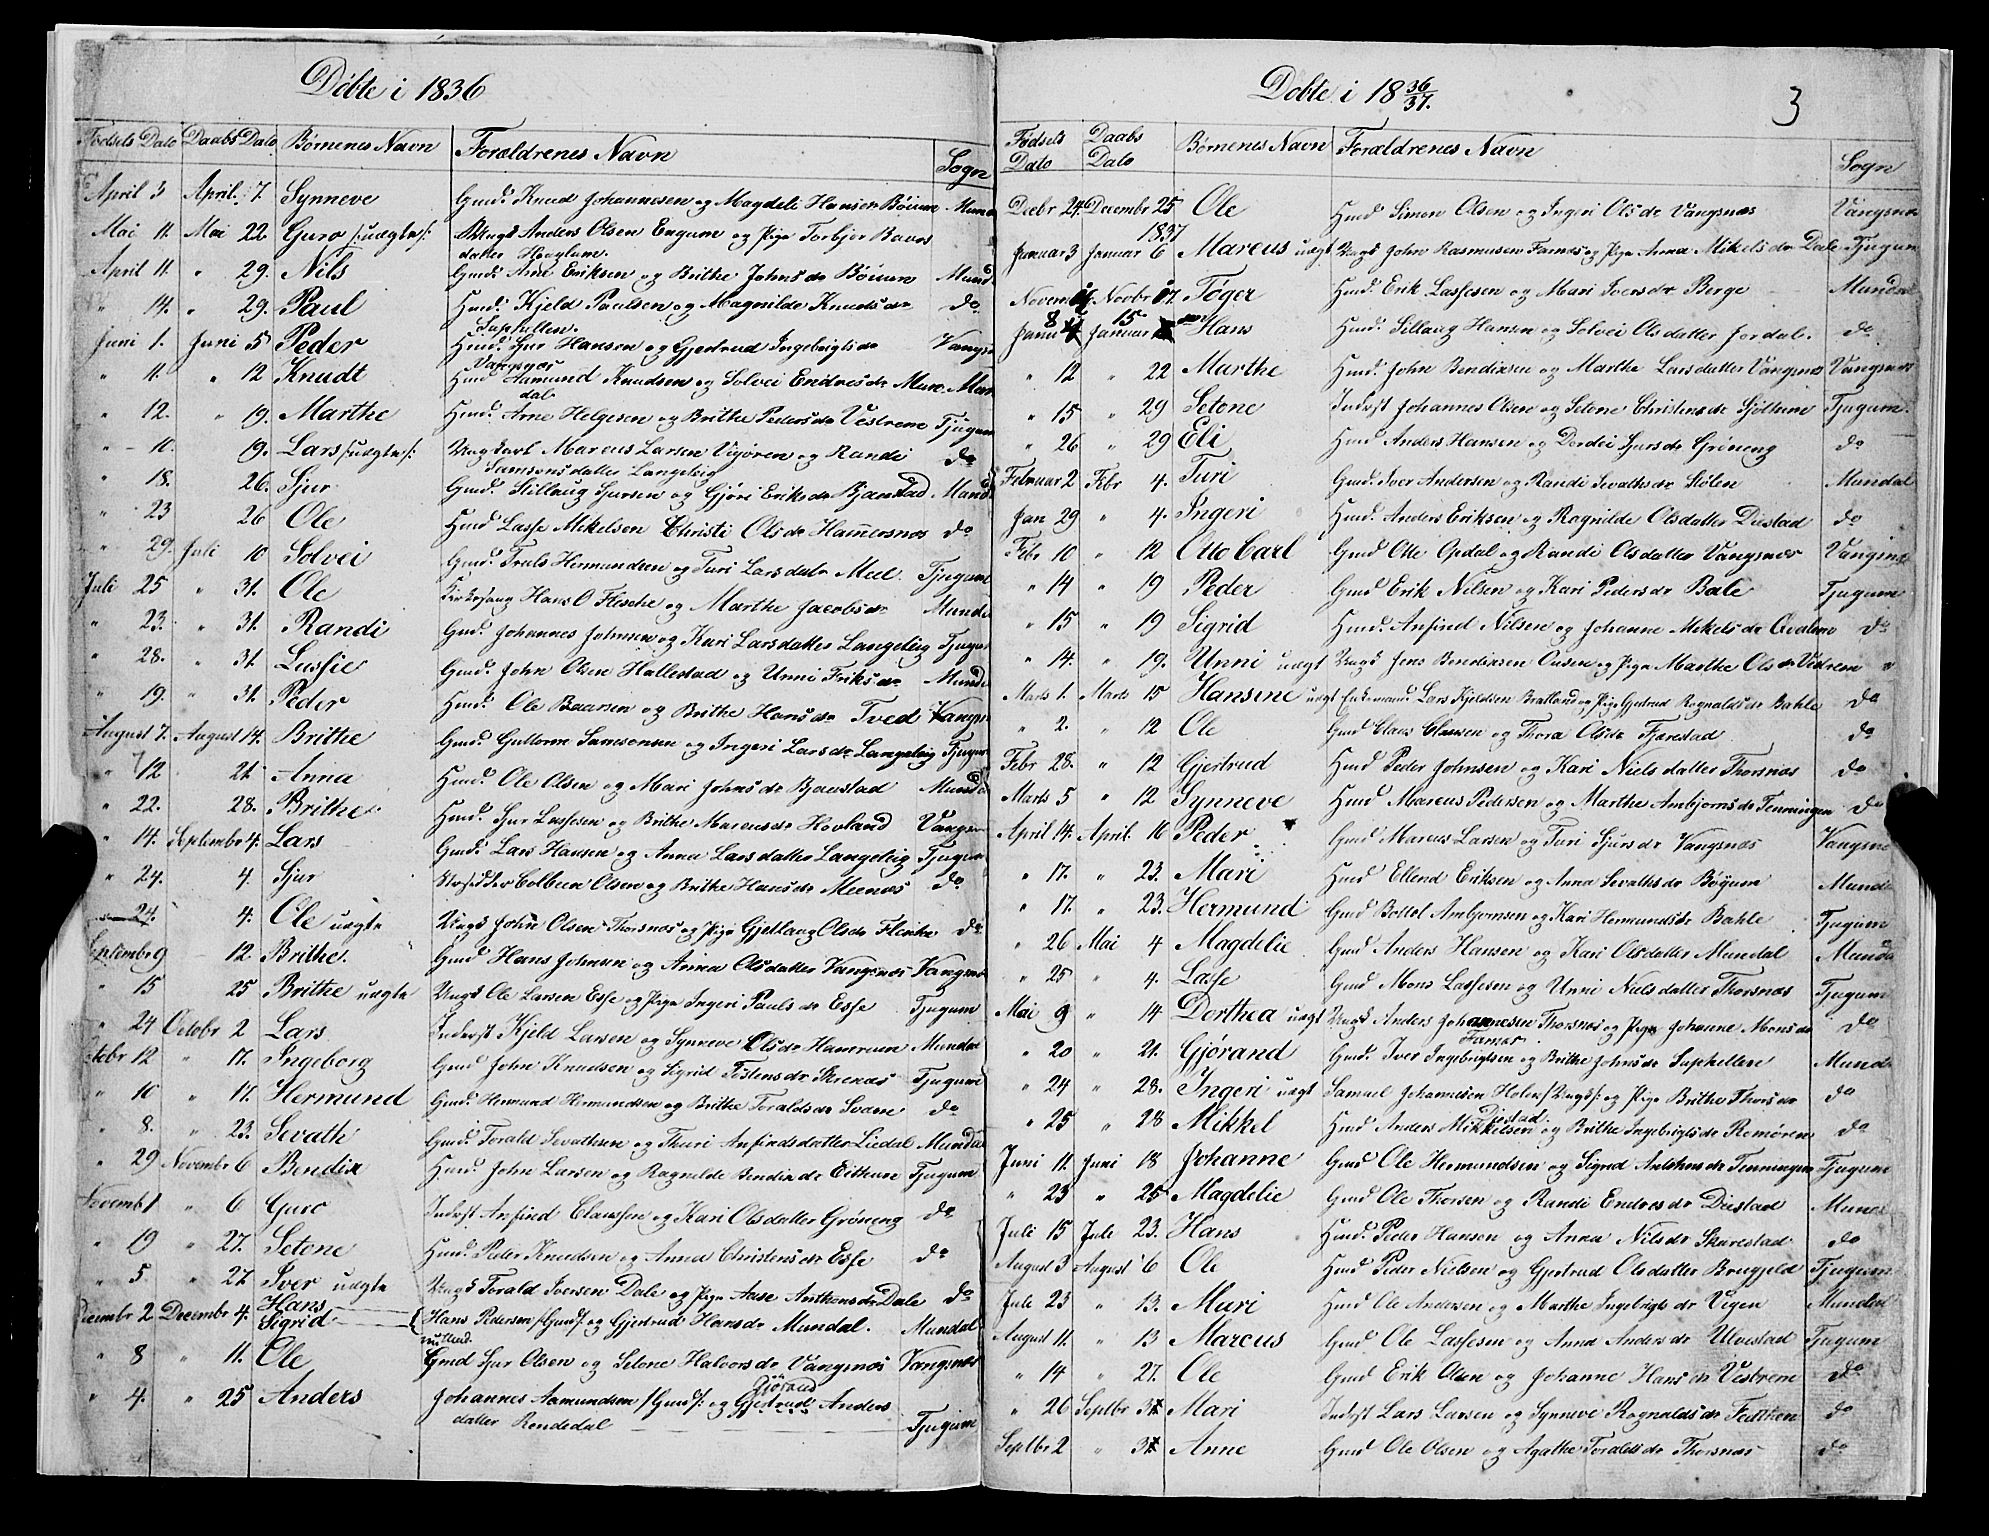 Døbte i 1836
Fødsels Dato Daabs Dato Børnenes Navn Forældrenes Navn Sogn
April 3 April 7 Synneve Gmd. Knud Johannesen og Magdeli Hansdr Bøium
Mai 11. Mai 22. Guro /:uægte:/ Ungk Anders Olsen Engum og Pige Torbjør
datter
April 11. " 29. Nils Gmd. Arne Eriksen og Brithe Johnsdr Bøium Mund
" 14. " 29. Paul Hmd. Kjeld Paulsen og Magnilde Knudsdr do
Suphellen.
Juni 1. Juni 5 Peder Hmd. Sjur Hansen og Gjertrud Ingebrigtsdr Vangs
Vangsnæs
" 11. " 12 Knudt Hmd Aamund Knudsen og Solvei Endresdr Mun
dal
" 12. " 19. Marthe Hmd. Arne Helgesen og Brithe Pedersdr Vestrem Tjugum
" 10. 19. Lars /:uægte:/ Ungkarl Marcus Larsen og Randi do
Samsonsdatter Langeteig
" 18. 26. Sjur Gmd. Sillaug Sjursen og Gjøri Eriksdr Bjaastad Mund
" 23 26 Ole Hmd Lasse Mikelsen Christi Olsdr Hamersnæs do
" 29. Juli 10 Solvei Gmd. Truls Hermundsen og Turi Larsdatr Meel. Tjugum
Juli 25 " 31. Ole Kirkesang Hans O Flesche og Marthe Jacobsdr Munda
" 23. " 31. Randi Gmd. Johannes Johnsen og Kari Larsdatter Langeteig Tjugu
" 28. " 31. Lassie Gmd. John Olsen Hallestad og Unni Eriksdr Munda
" 19. " 31. Peder Hmd. Ole Baarsen og Brithe Hansdr Tved Vangs
August 7. August 14. Brithe Gmd. Guttorm Samsonsen og Ingeri Larsdr Langeteig Tjugu
" 12 21. Anna Hmd. Ole Olsen og Mari Johnsdr Bjaastad Munda
" 22. 28. Brithe. Hmd. Sjur Lassesen og Brithe Marcusdr Hovland Vangsn
" 14. Septembr 4. Lars Gmd. Lars Hansen og Anna Larsdatter Langeteig Tjugum
" 24. 4. Sjur Colbein Olsen og Brithe Hansdr Meenæs do
24. 4. Ole uægte Ungk John Olsen Thorsnæs og Pige Gjetlaug Olsdr Flesche do
Septembr 9 12. Brithe. Gmd Hans Johnsen og Anna Olsdatter Vangsnæs Vangsnæs
" 15 25 Brithe uægte Ungk Ole Larsen Esse og Pige Ingeri Paulsdr Esse Tjugum
" 24 Octobr 2 Lars Inderst Kjeld Larsen og Synneve Olsdr Hamrum Mundal
Octobr 12 " 17. Ingeborg Gmd John Knudsen og Sigrid Tostensdr Tjugum
" 10 " 17. Hermund Gmd. Hermund Hermundsen og Brithe Toraldsdr Svæen do
" 8. " 23. Sevath Gmd. Torald Sevathsen og Thuri Anfindsdatter Liedal Munda
" 29 Novembr 6 Bendix Hmd. John Larsen og Ragnilde Bendixdr Eithun Tjugum
Novemb 1 " 6 Guro Inderst Anfind Claussen og Kari Olsdatter Grøneng do
" 19 " 27. Setone Hmd. Peder Knudsen og Anna Christensdr Esse do
" 5 " 27 Iver uægte Ungk Torald Iversen Dale og Pige Aase Anthonsdr Dale do
Decembr 2 Decembr 4. Hans
Sigrid { Hans Pedersen /Gmd/ og Gjertrud Hansdr Mundal. Mundal
" 8 " 11. Ole Gmd Sjur Olsen og Setone Halvorsdr Vangsnæs Vangsnæs
" 4. " 25 Anders Johannes Aamundsen /:Gmd/: og Gjertrud Gjørand Anders
datter Rendedal Tjugum
Døbte i 18 36/37. 3
Fødsels Dato Daabs Dato Børnenes Navn Forældrenes Navn Sogn
Decbr 24. Decembr 25 Ole Hmd Simon Olsen og Ingeri Olsdr Vangsnæs Vangsnæs
1837
Januar 3 Januar 6 Marcus uægt Ungk John Rasmusen Farnæs og Pige Anna Mikelsdr Dale Tjugum
Novemb Novbr Tøger Hmd. Erik Lassesen og Mari Iversdr Berge Mundal
Janu 8 Januar 15 Hans Hmd. Sillaug Hansen og Solvei Olsdatter Jordal. do
" 12 " 22 Marthe Hmd. John Bendixsen og Marthe Larsdatter Vangsnæs Vangsnæs
" 15 " 29 Setone Inderst Johannes Olsen og Setone Christensdr Sjøthun Tjugum.
" 26 " 29 Eli Hmd Anders Hansen og Dordei Sjursdr Grøneng do
Februar 2 Febr 4. Turi Gmd. Iver Andersen og Randi Sevathsdr Stølen Mundal
Jan 29 " 4. Ingeri Hmd. Anders Eriksen og Ragnilde Olsdatter Diestad do
Febr 10 " 12 Otto Carl Gmd Otte Opdal og Randi Olsdatter Vangsnæs Vangsnæs
" 14 " 19 Peder Gmd Erik Nilsen og Kari Pedersdr Bale Tjugum
" 15 " 19 Sigrid Hmd. Anfind Nilsen og Johanne Mikelsdr Qvalem do
" 14. " 19. Unni uægt Ungk Jens Bendixsen og Pige Marthe Olsdr "
Marts 1. Marts 15 Hansine uægt Enkemand Lars Kjeldsen Bratland og Pige Gjertrud Ragnaldsdr Bahle do
" 2. " 12 Ole Gmd Claus Clausen og Thora Olsdr Fjærestad do
Febr 28. " 12 Gjertrud Hmd Peder Johnsen og Kari Nielsdatter Thorsnæs do
Marts 5 " 12 Synneve Hmd Marcus Pedersen og Marthe Anbjørnsdr Tenningen do
April 14. April. 16 Peder Gmd Marcus Larsen og Turi Sjursdr Vangsnæs Vangsnæ
" 17. " 23. Mari Hmd Ellend Eriksen og Anna Sevathsdr Bøyum Munda
" 17. " 23. Hermund Gmd Bottol Ambjørnsen og Kari Hermundsdr Bahle Tjugum
" 26 Mai 4 Magdelie Gmd Anders Hansen og Kari Olsdatter Mundal Munda
" 25 " 4. Lasse Gmd Mons Lassesen og Unni Nielsdatter Thorsnæs Tjugum
Mai 9 " 14 Dorthea uægt Ungk Anders Johannesen Thorsnæs og Pige Johanne Monsdr do
Farnæs.
" 20 " 21. Gjørand Gmd. Iver Ingebrigtsen og Brithe Johnsdr Suphellen Mund
" 24 " 28. Ingeri uægt Samuel Johannesen Holen /Ungk/: og Pige Brithe Thorsdr do
Diestad
" 25 " 28 Mikkel Hmd Anders Mikkelsen og Brithe Ingebrigtsdr Remøren do
Juni 11. Juni 18 Johanne Gmd Ole Hermundsen og Sigrid Anthonsdr Tenningen Tjugum
" 23 " 25 Magdelie Gmd Ole Thorsen og Randi Endresdr Diestad Mund
Juli 15 Juli 23. Hans Hmd. Peder Hansen og Anna Nilsdr Skarestad do
August 3 August 6 Ole Hmd Peder Nielsen og Gjertrud Olsdatter Brugjeld Tjugum
Juli 23 " 13. Mari Hmd Ole Andersen og Marthe Ingebrigtsdr Vigen Mundal
August 11. " 13 Marcus Gmd Ole Lassesen og Anna Andersdr Ulvestad Tjugum
" 14 " 27. Ole Gmd Erik Olsen og Johanne Hansdr Vestrem do
" 26 Septbr 3 Mari Inderst Lars Larsen og Synneve Ragnaldsdr do
Septbr 2 " 3 Anne Gmd Ole Olsen og Agathe Toraldsdr Thorsnæs do